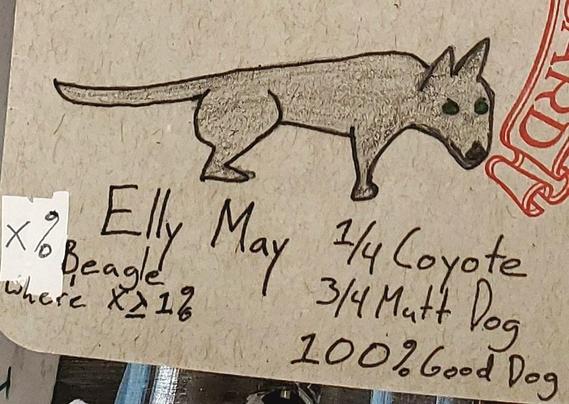 ARD
Elly May
x%
Beagle
where x≥1%
1/4 Coyote
3/4 Mutt Dog
100% Good Dog